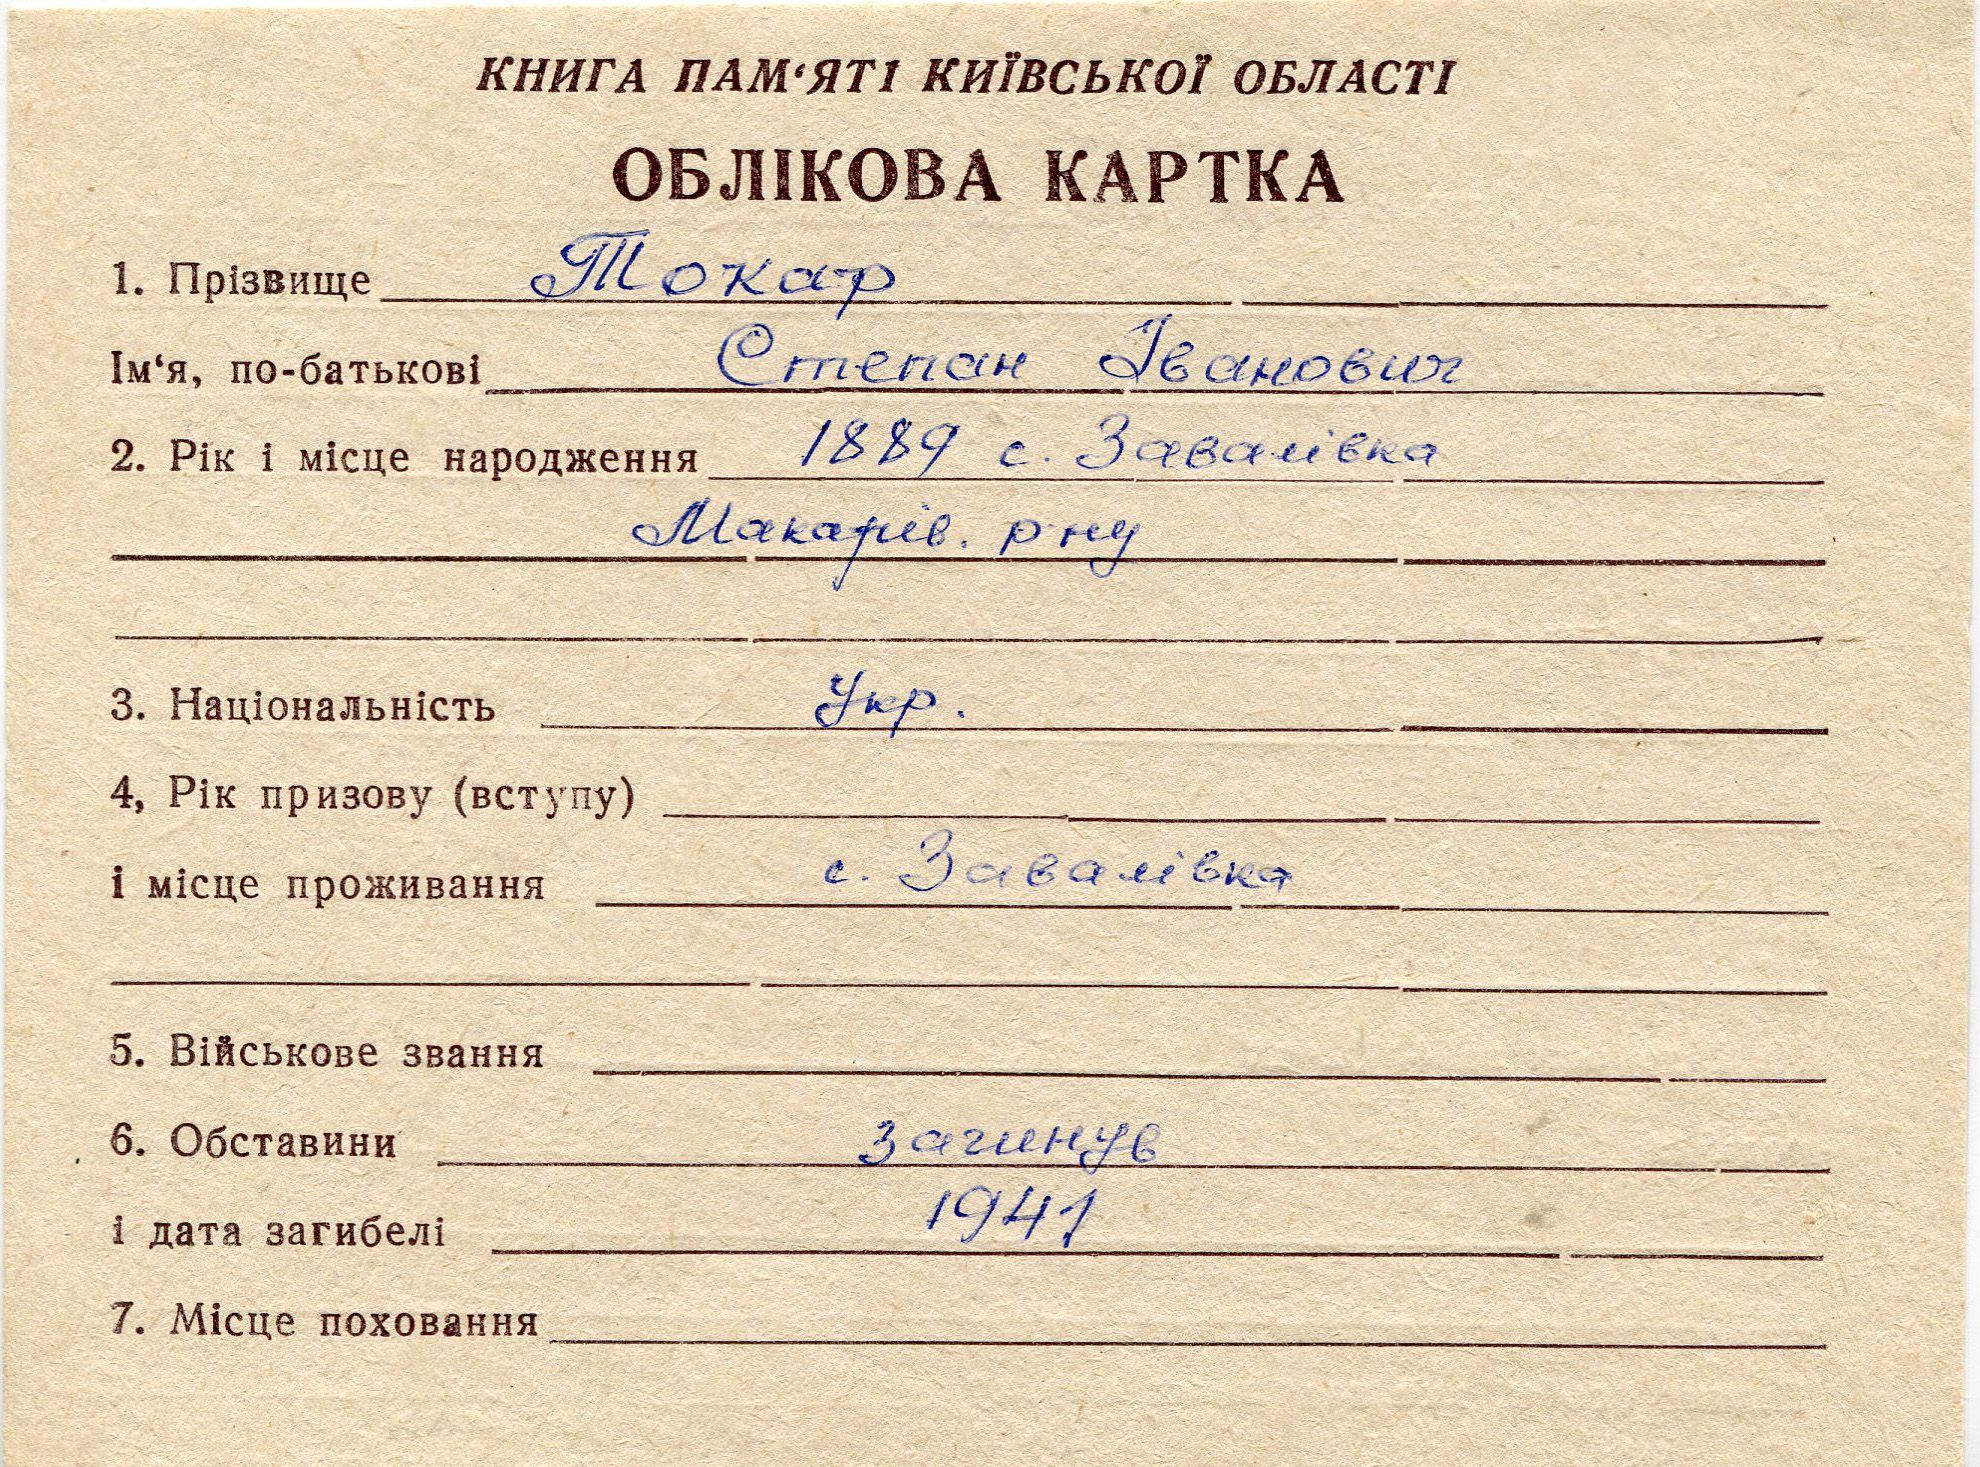 КНИГА ПАМ‘ЯТІ КИЇВСЬКОЇ ОБЛАСТІ
ОБЛІКОВА КАРТКА
1. Прізвище Токар
Ім‘я, по-батькові Степан Іванович
2. Рік і місце народження 1889 с. Завалівка
Макарів. р-ну
3. Національність Укр.
4, Рік призову (вступу)
і місце проживання с. Завалівка
5. Військове звання
6. Обставини загинув
і дата загибелі 1941
7. Місце поховання